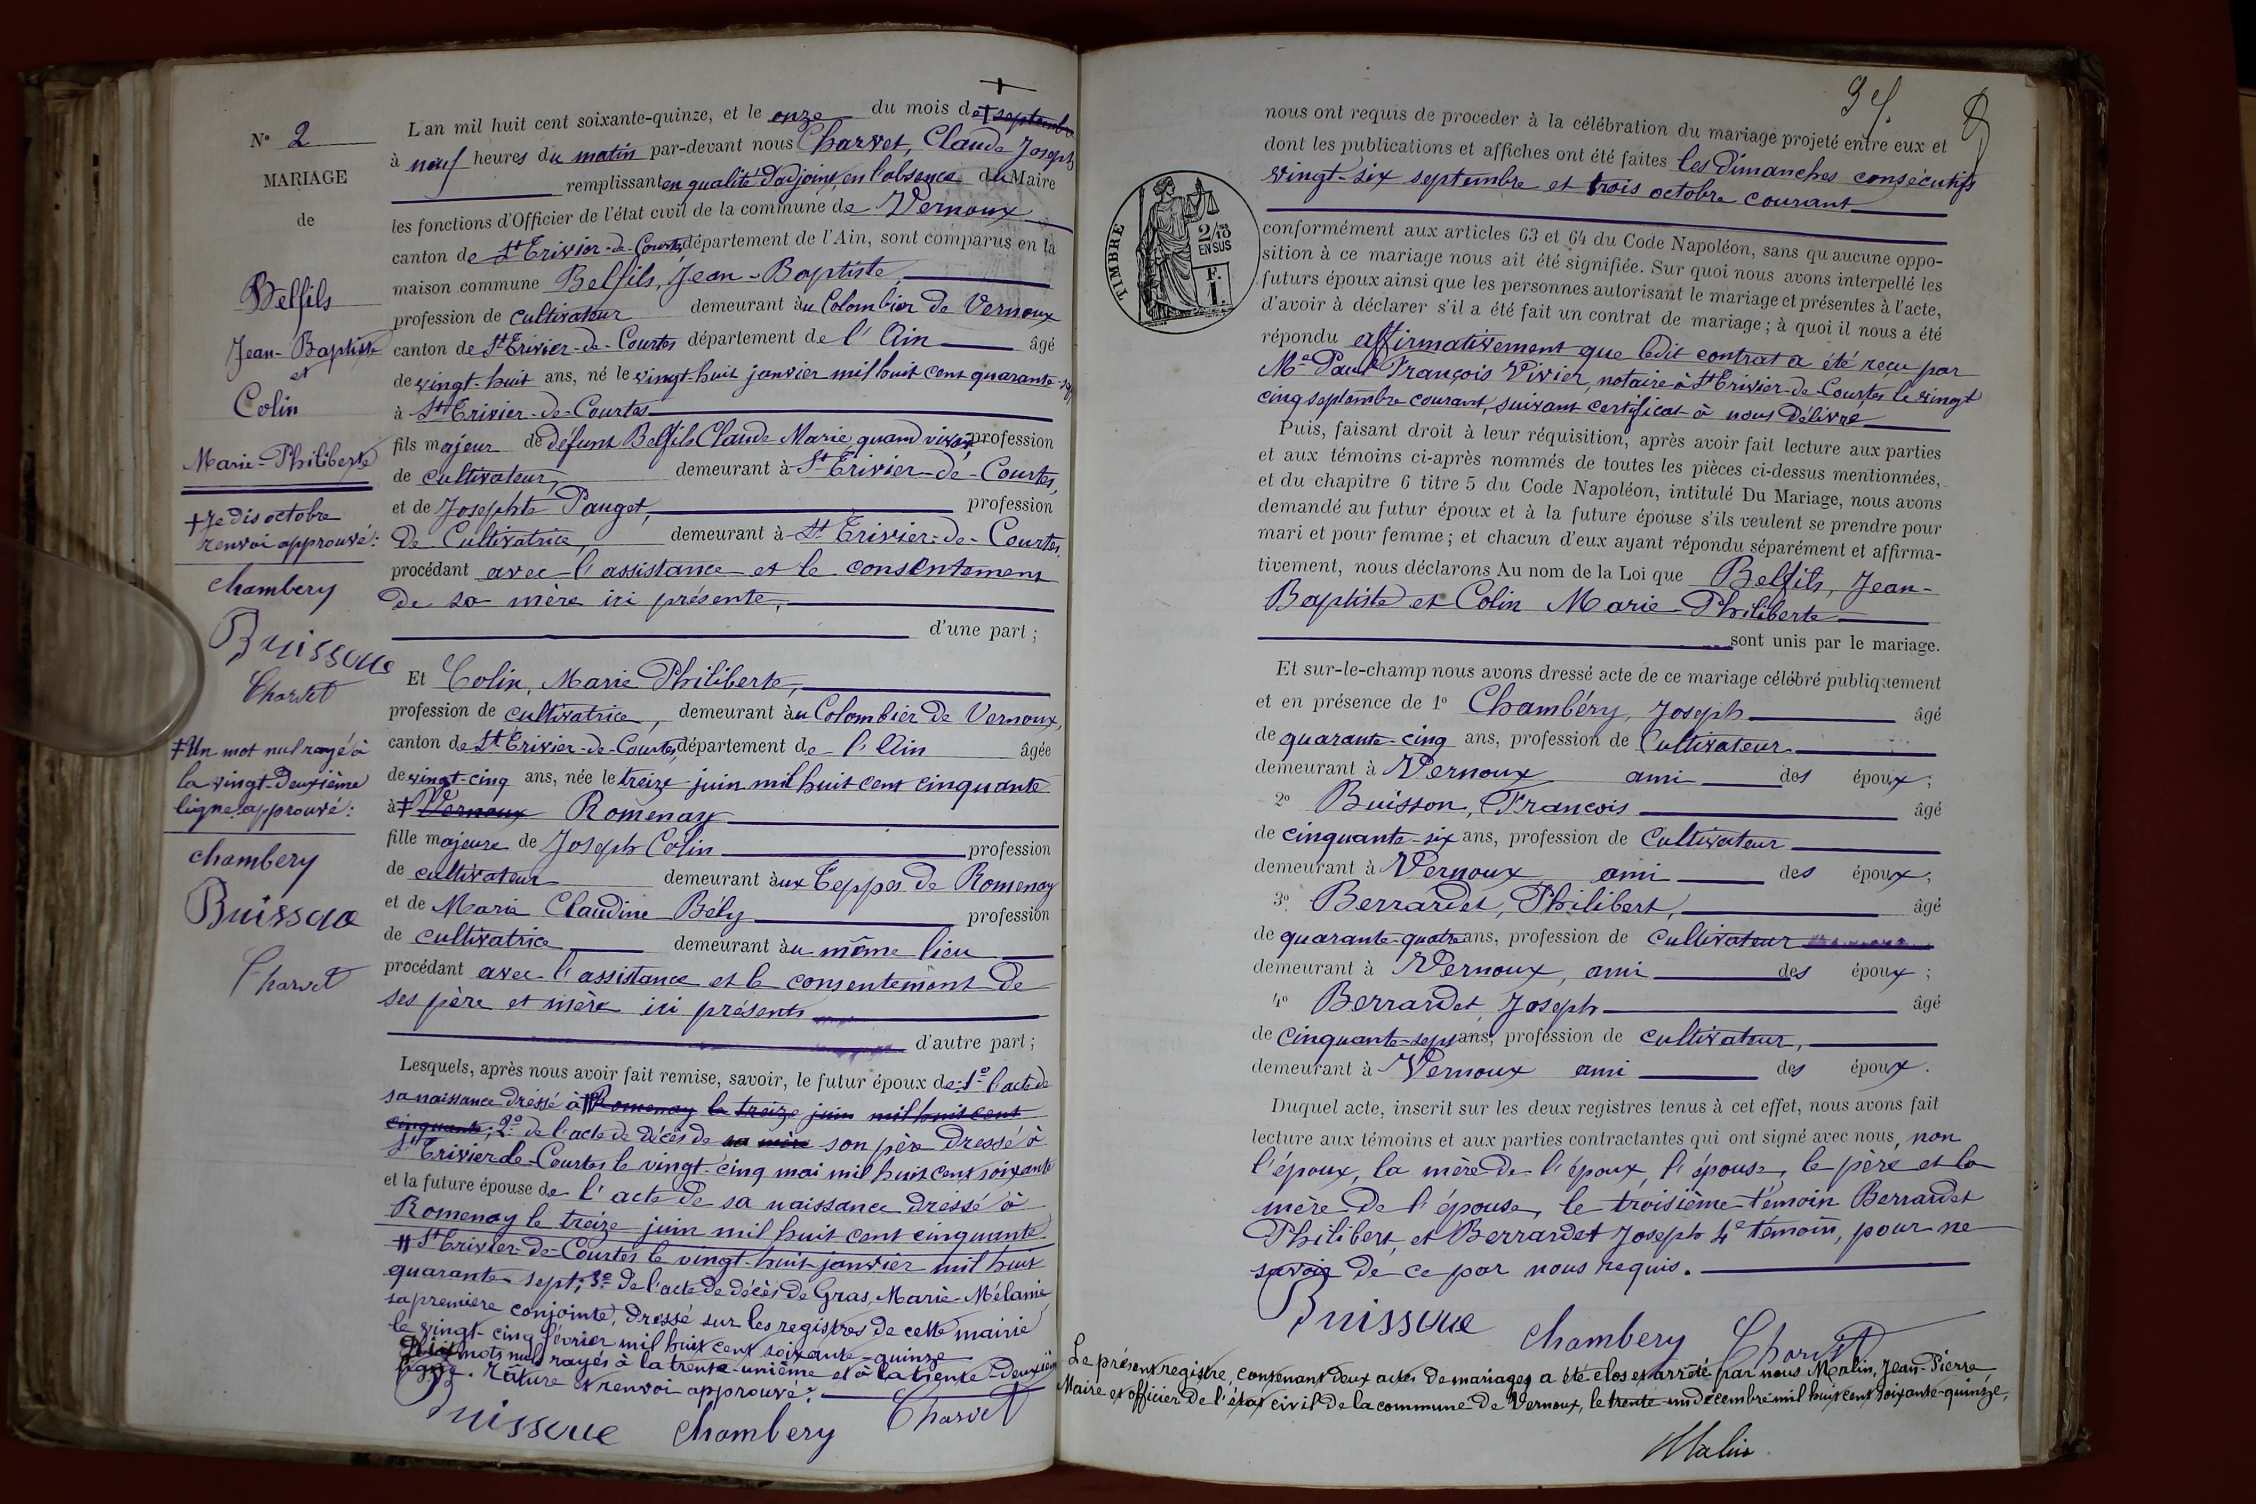 N° 2
MARIAGE
de
Belfils
Jean-Baptiste
et
Colin
Marie-Philiberte
† Je dis octobre
renvoi approuvé:
Chambery
Buisson
Charvet
‡ Un mot nul rayé à
la vingt-deuxième
ligne approuvé:
Chambery
Buisson
Charvet
L'an mil huit cent soixante-quinze, et le onze du mois de † septembre
à neuf heures du matin par-devant nous Charvet, Claude Joseph
remplissant en qualité d'adjoint, en l'absence du Maire
les fonctions d'Officier de l'état civil de la commune de Vernoux
canton de St Trivier-de-Courtes, département de l'Ain, sont comparus en la
maison commune Belfils, Jean-Baptiste,
profession de cultivateur demeurant au Colombier de Vernoux
canton de St Trivier-de-Courtes département de l'Ain âgé
de vingt-huit ans, né le vingt-huit janvier mil huit cent quarante-sept
à St Trivier-de-Courtes
fils majeur de défunt Belfils Claude Marie quand vivait, profession
de cultivateur, demeurant à St Trivier-de-Courtes,
et de Josephte Pauget, profession
de Cultivatrice, demeurant à St Trivier-de-Courtes,
procédant avec l'assistance et le consentement
de sa mère ici présente,
d'une part;
Et Colin, Marie Philiberte,
profession de cultivatrice, demeurant au Colombier de Vernoux,
canton de St Trivier-de-Courtes, département de l'Ain âgée
de vingt-cinq ans, née le treize juin mil huit cent cinquante
à ‡ Vernoux Romenay
fille majeure de Joseph Colin profession
de cultivateur demeurant aux Teppes de Romenay
et de Marie Claudine Bély profession
de cultivatrice demeurant au même lieu
procédant avec l'assistance et le consentement de
ses père et mère ici présents
d'autre part;
Lesquels, après nous avoir fait remise, savoir, le futur époux de 1° l'acte de
sa naissance dressé à # Romenay le treize juin mil huit cent
cinquante; 2° de l'acte de décès de sa mère son père dressé à
St Trivier de-Courtes le vingt-cinq mai mil huit cent soixante
et la future épouse de l'acte de sa naissance dressé à
Romenay le treize juin mil huit cent cinquante.
# St Trivier-de-Courtes le vingt-huit janvier mil huit
quarante-sept; 3° de l'acte de décès de Gras, Marie-Mélanie
sa première conjointe, dressé sur les registres de cette mairie
le vingt-cinq février mil huit cent soixante-quinze
mots nuls rayés à la trente-unième et à la trente-deuxième
ligne. Râture et renvoi approuvé:
Buisson Chambery Charvet
nous ont requis de procéder à la célébration du mariage projeté entre eux et
dont les publications et affiches ont été faites les dimanches consécutifs
vingt-six septembre et trois octobre courant
conformément aux articles 63 et 64 du Code Napoléon, sans qu'aucune oppo-
sition à ce mariage nous ait été signifiée. Sur quoi nous avons interpellé les
futurs époux ainsi que les personnes autorisant le mariage et présentes à l'acte,
d'avoir à déclarer s'il a été fait un contrat de mariage; à quoi il nous a été
répondu affirmativement que ledit contrat a été reçu par
Me Paul François Vivier, notaire à St Trivier-de-Courtes le vingt
cinq septembre courant, suivant certificat à nous délivré
Puis, faisant droit à leur réquisition, après avoir fait lecture aux parties
et aux témoins ci-après nommés de toutes les pièces ci-dessus mentionnées,
et du chapitre 6 titre 5 du Code Napoléon, intitulé Du Mariage, nous avons
demandé au futur époux et à la future épouse s'ils veulent se prendre pour
mari et pour femme; et chacun d'eux ayant répondu séparément et affirma-
tivement, nous déclarons Au nom de la Loi que Belfils, Jean-
Baptiste et Colin Marie-Philiberte
sont unis par le mariage.
Et sur-le-champ nous avons dressé acte de ce mariage célébré publiquement
et en présence de 1° Chambéry, Joseph âgé
de quarante-cinq ans, profession de Cultivateur
demeurant à Vernoux ami des époux;
2° Buisson, François âgé
de cinquante-six ans, profession de Cultivateur
demeurant à Vernoux ami des époux;
3° Berrardet, Philibert, âgé
de quarante-quatre ans, profession de cultivateur
demeurant à Vernoux, ami des époux;
4° Berrardet, Joseph âgé
de cinquante-sept ans, profession de cultivateur,
demeurant à Vernoux ami des époux.
Duquel acte, inscrit sur les deux registres tenus à cet effet, nous avons fait
lecture aux témoins et aux parties contractantes qui ont signé avec nous, non
l'époux, la mère de l'époux, l'épouse, le père et la
mère de l'épouse, le troisième témoin Berrardet
Philibert, et Berrardet Joseph 4e témoin, pour ne
savoir de ce par nous requis.
Buisson Chambery Charvet
Le présent registre, contenant deux actes de mariages a été clos et arrêté par nous Malin, Jean-Pierre,
Maire et officier de l'état civil de la commune de Vernoux, le trente-un décembre mil huit cent soixante-quinze,
Malin
TIMBRE
2/10 EN SUS
F. 1.